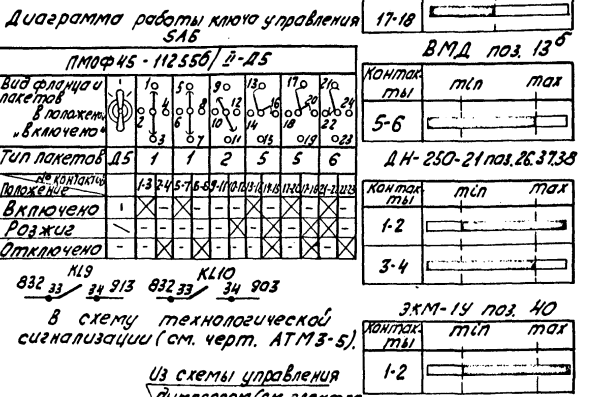 Диаграмма работы ключа управления
SAб
ПМОФ45-112556/II-Д5
Вид фланца и
пакетов
в положении
„включено"
1 5 9 13 17 21
2 4 6 8 10 12 14 16 18 20 22 24
3 7 11 15 19 23
Тип пакетов Д5 1 1 2 5 5 6
№ контактов
Положение
1-3 2-4 5-7 6-8 9-11 10-12
Включено
Розжиг
Отключено
KL9 KL10
832 33 34 913 832 33 34 903
В схему технологической
сигнализации (см. черт. АТМ3-5).
Из схемы управления
17-18
ВМД поз. 13б
Контак-
ты min max
5-6
ДН-250-21 поз. 26.37.38
Контак-
ты min max
1-2
3-4
ЭКМ-1У поз. 40
Контак-
ты min max
1-2